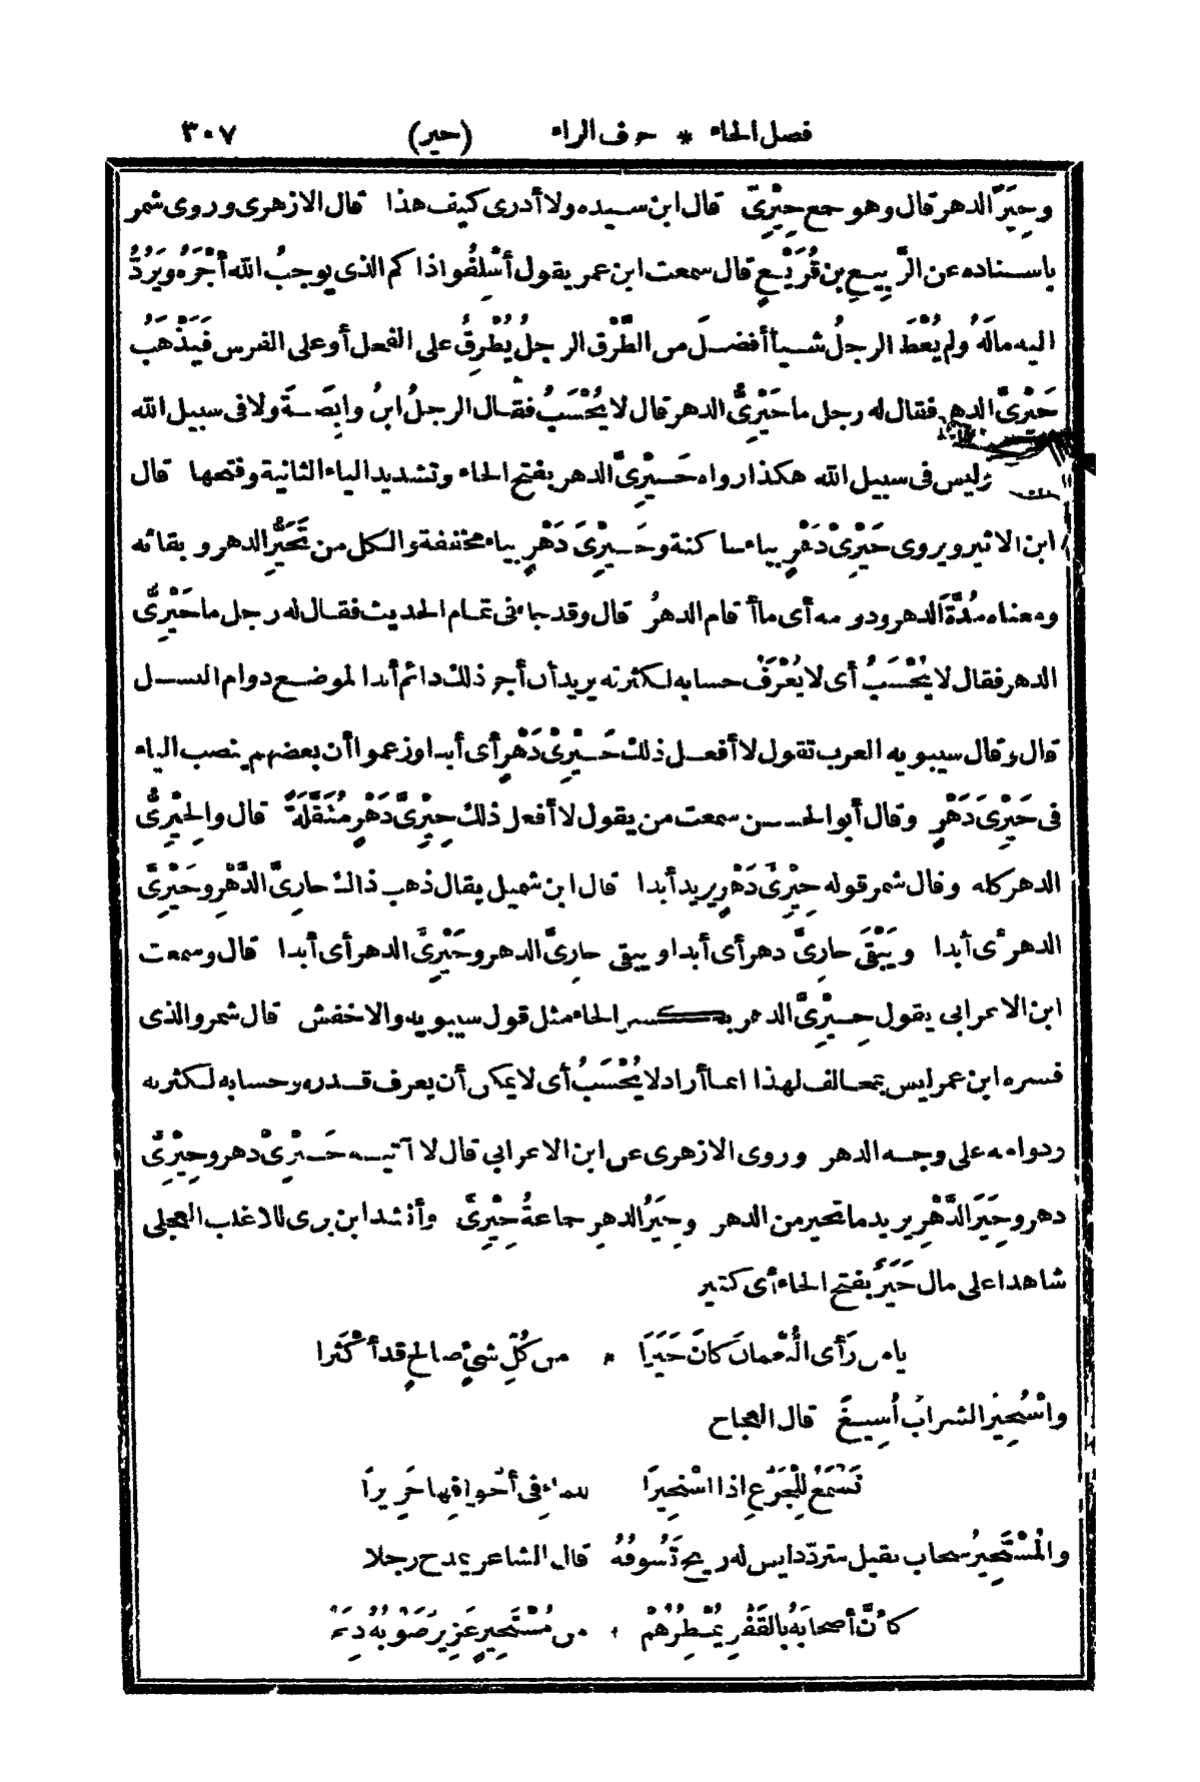 فصل الحاء * حرف الراء (حير) ٣٠٧
وحِيَرَ الدهر قال وهو جمع حِيْرِيّ قال ابن سيده ولا أدرى كيف هذا قال الازهرى وروى شمر
باسناده عن الرَّبِيعِ بن قُرَيْعٍ قال سمعت ابن عمر يقول أَسْلِفُوا ذا كم الذى يوجبُ الله أَجْرَهُ ويَرُدُّ
اليه مالَهُ ولم يُعْطَ الرجلُ شيأ أفضلَ من الطَّرْق الرجلُ يُطْرِقُ على الفحل أو على الفرس فَيَذْهَبُ
حَيْرِىَّ الدهر فقال له رجل ما حَيْرِىُّ الدهر قال لا يُحْسَبُ فقال الرجلُ ابنُ وابِصَةَ ولا فى سبيل الله
وليس فى سبيل الله هكذا رواه حَيْرِىَّ الدهر بفتح الحاء وتشديد الياء الثانية وفتحها قال
ابن الاثير ويروى حَيْرِىْ دَهْرٍ بياء ساكنة وحَيْرِىَ دَهْرٍ بياء مخففة والكل من تَحَيُّرِ الدهر وبقائه
ومعناه مُدَّةَ الدهر ودوامه أى ما أقام الدهرُ قال وقد جاء فى تمام الحديث فقال له رجل ما حَيْرِىُّ
الدهر فقال لا يُحْسَبُ أى لا يُعْرَفُ حسابه لكثرته يريد أن أجر ذلك دائم أبدا لموضع دوام النسل
قال وقال سيبويه العرب تقول لا أفعل ذلك حَيْرِىْ دَهْرٍ أى أبدا وزعموا أن بعضهم ينصب الياء
فى حَيْرِىَ دَهْرٍ وقال أبو الحسن سمعت من يقول لا أفعل ذلك حِيْرِىَّ دَهْرٍ مُثَقَّلَةً قال والحِيْرِىُّ
الدهر كله وقال شمر قوله حِيْرِىَّ دَهْرٍ يريد أبدا قال ابن شميل يقال ذهب ذاك حارِىَّ الدَّهْرِ وحَيْرِىَّ
الدهر أى أبدا ويَبْقَى حارِىَّ دهر أى أبدا ويبقى حارِىَّ الدهر وحَيْرِىَّ الدهر أى أبدا قال وسمعت
ابن الاعرابى يقول حِيْرِىَّ الدهر بكسر الحاء مثل قول سيبويه والاخفش قال شمر والذى
فسره ابن عمر ليس بمخالف لهذا انما أراد لا يُحْسَبُ أى لا يمكن أن يعرف قدره وحسابه لكثرته
ودوامه على وجه الدهر وروى الازهرى عن ابن الاعرابى قال لا آتيه حَيْرِىْ دهر وحِيْرِىَّ
دهر وحِيَرَ الدَّهْرِ يريد ما تحير من الدهر وحِيَرُ الدهرِ جماعةُ حِيْرِىَّ وأنشد ابن برى للاغلب العجلى
شاهدا على مال حَيَرٌ بفتح الحاء أى كثير
يا من رَأَى النُّعْمانَ كانَ حَيَرَا * من كُلِّ شئٍ صالحٍ قد أَكْثَرا
واسْتُحِيرَ الشرابُ أُسِيغَ قال العجاج
تَسْمَعُ لِلْجَرْعِ اذا اسْتُحِيرَا للماءِ فى أَجْوافِها خَرِيرَا
والمُسْتَحِيرُ سحاب ثقيل متردّد ليس له ريح تَسُوقُهُ قال الشاعر يمدح رجلا
كأنَّ أصحابَهُ بالقَفْرِ يُمْطِرُهُمْ * من مُسْتَحِيرٍ غَزِيرٌ صَوْبُهُ دِيَمُ